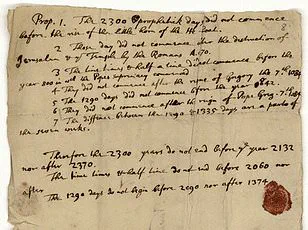 Prop. 1. The 2300 prophetick days did not commence
before the rise of the little horn of the He Goat.
2 Those days did not commence after the destruction of
Jerusalem & ye Temple by the Romans A.70.
3 The time times & half a time did not commence before the
year 800 in wch the Popes supremacy commenced
4 They did not commence after the reign of Gregory the 7th 1084
5 The 1290 days did not commence before the year 842.
6 They did not commence after the reign of Pope Greg. 7th 1084
7 The difference between the 1290 & 1335 days are a parts of
the seven weeks.
Therefore the 2300 years do not end before ye year 2132
nor after 2370.
The time times & half time do not end before 2060 nor
after
The 1290 days do not begin before 2090 nor after 1374